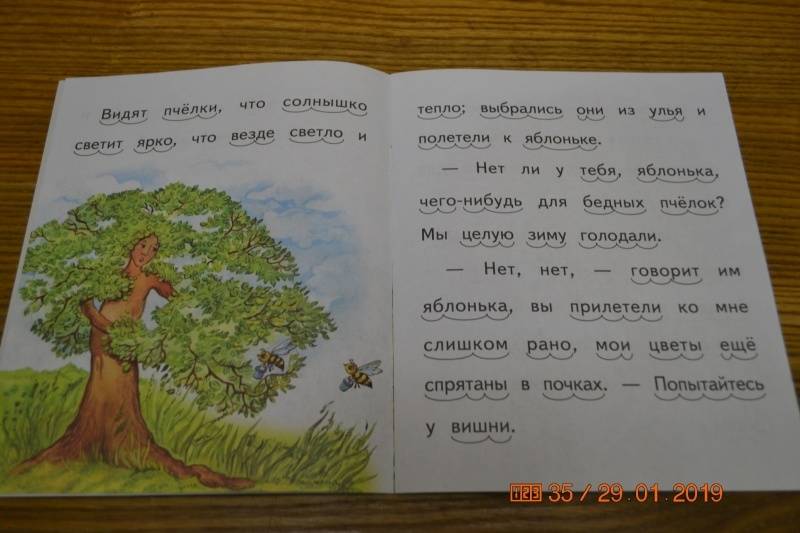 Видят пчёлки, что солнышко
светит ярко, что везде светло и
тепло; выбрались они из улья и
полетели к яблоньке.
— Нет ли у тебя, яблонька,
чего-нибудь для бедных пчёлок?
Мы целую зиму голодали.
— Нет, нет, — говорит им
яблонька, вы прилетели ко мне
слишком рано, мои цветы ещё
спрятаны в почках. — Попытайтесь
у вишни.
123 35 / 29.01.2019